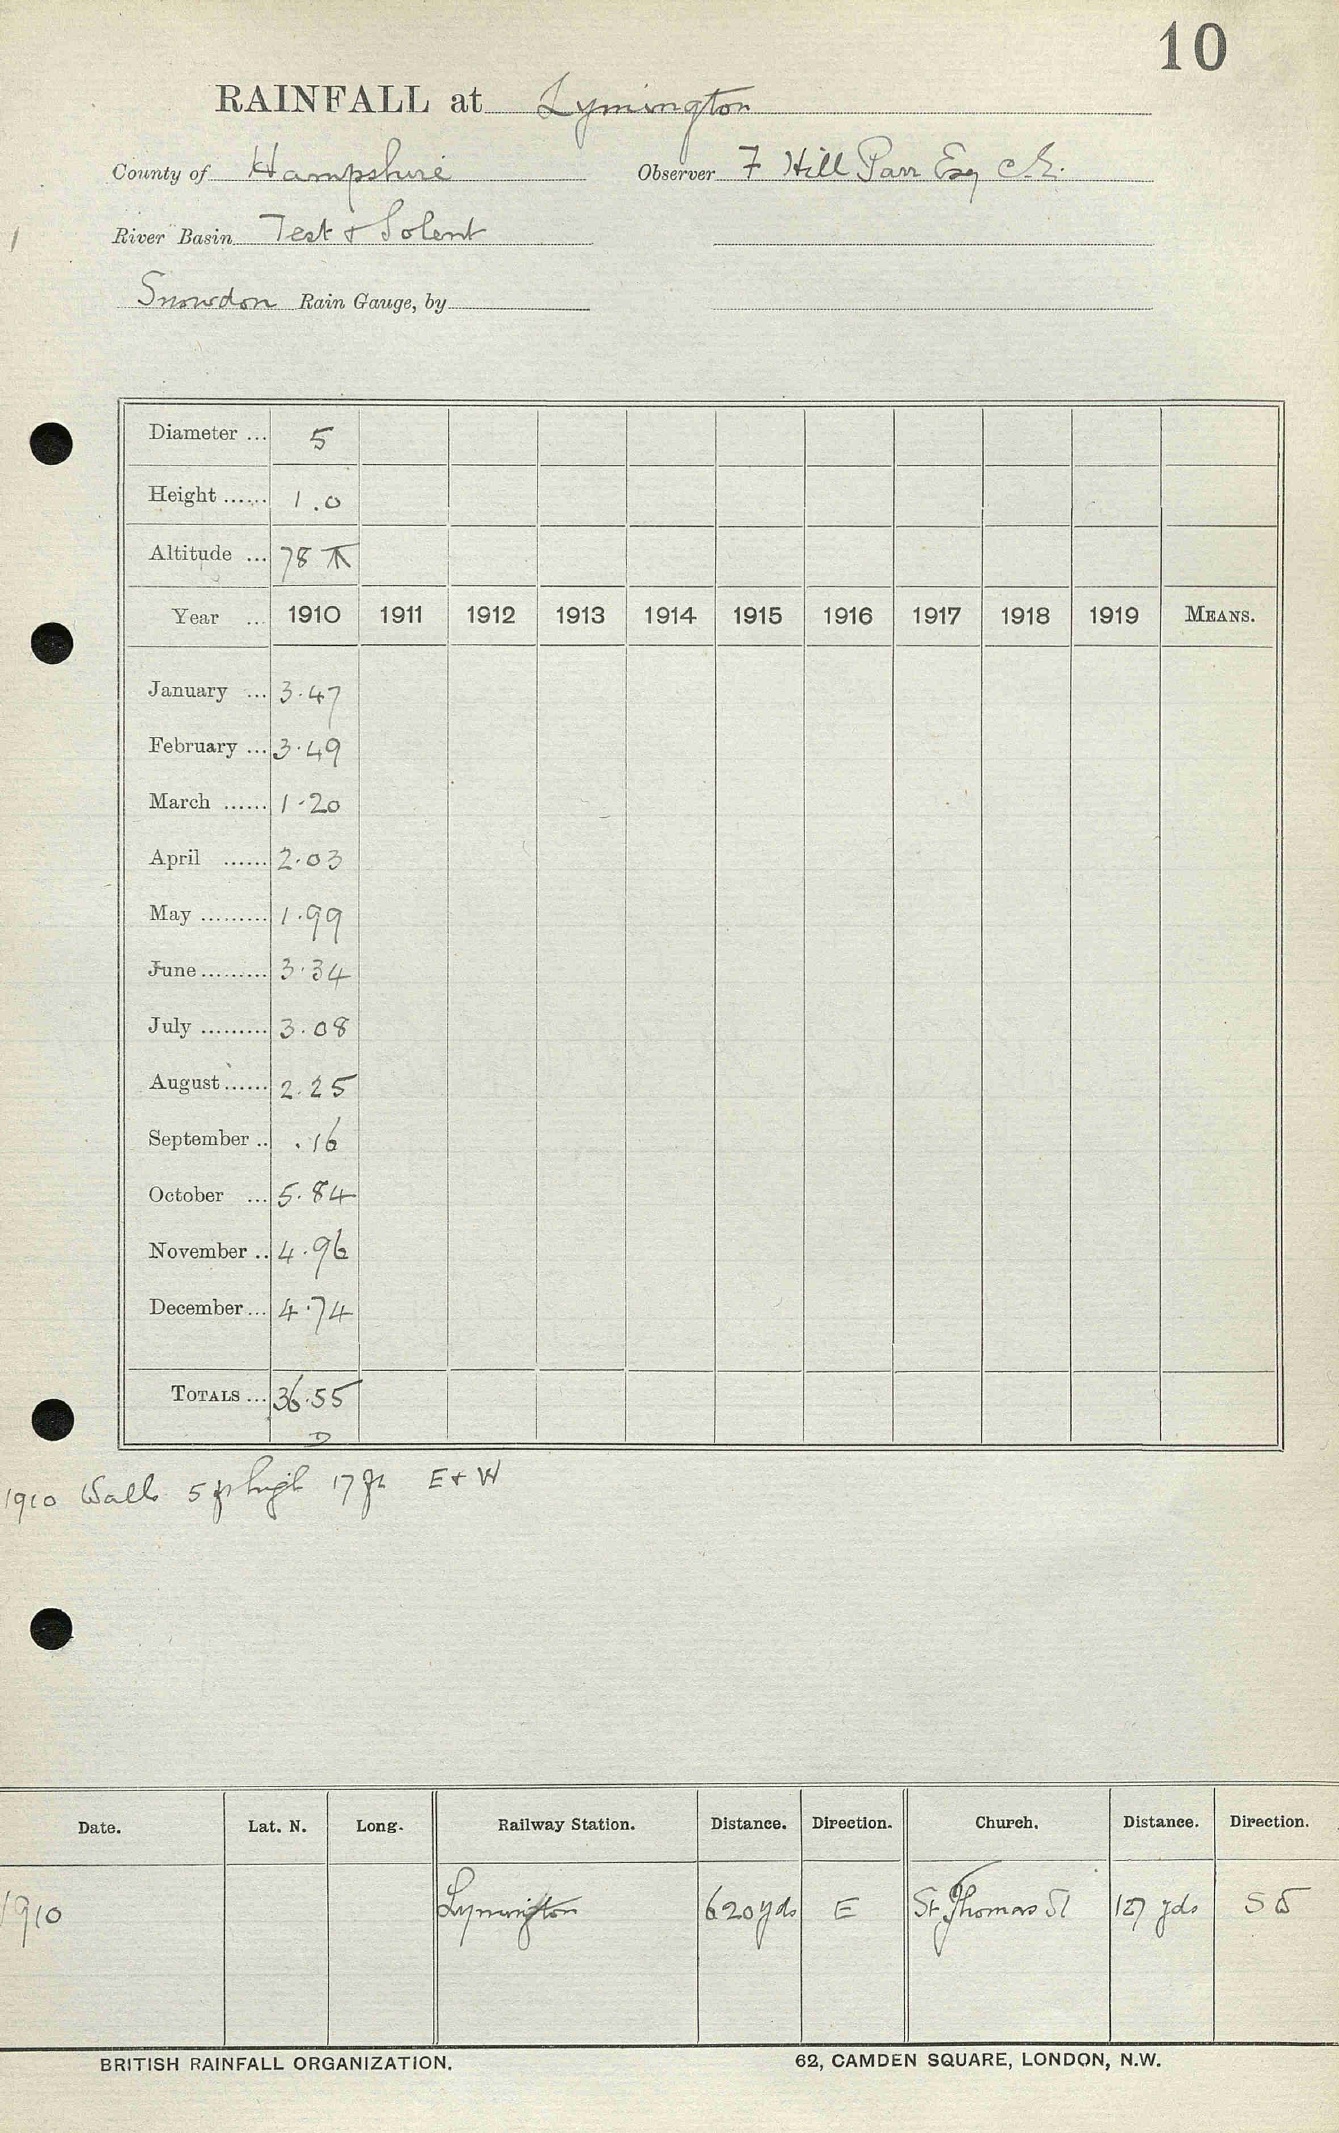 10
RAINFALL at Lymington
County of Hampshire Observer F Hill Parr Esq C.E.
River Basin Test & Solent
Snowdon Rain Gauge, by
Diameter ... 5
Height ...... 1.0
Altitude ... 78
Year ... 1910 1911 1912 1913 1914 1915 1916 1917 1918 1919 MEANS.
January ... 3.47
February ... 3.49
March ...... 1.20
April ...... 2.03
May ......... 1.99
June ......... 3.34
July ......... 3.08
August ...... 2.25
September .. .16
October ... 5.84
November .. 4.96
December ... 4.74
TOTALS ... 36.55
D
1910 Walls 5 ft high 17 ft E & W
Date. Lat. N. Long. Railway Station. Distance. Direction. Church. Distance. Direction.
1910 Lymington 620 yds E St Thomas 127 yds S
BRITISH RAINFALL ORGANIZATION. 62, CAMDEN SQUARE, LONDON, N.W.